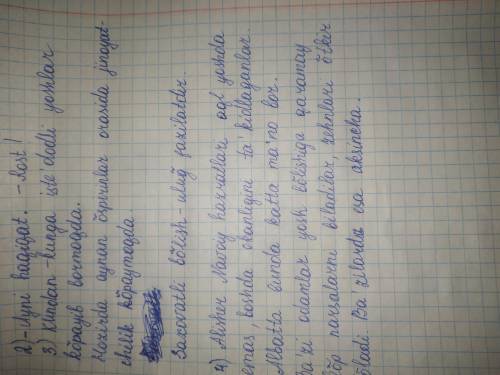 2) - Ayni haqiqat. - Rost!
3) Kundan - kunga iste'dodli yoshlar
ko'payib bormoqda.
Hozirda aynan o'spirinlar orasida jinoyat-
chilik ko'paymoqda.
Saxovatli bo'lish - ulug' fazilatdir.
4) Alisher Navoiy hazratlari aql yoshda
emas, boshda ekanligini ta'kidlaganlar.
Albatta bunda katta ma'no bor.
Ba'zi odamlar yosh bo'lishiga qaramay
ko'p narsalarni biladilar, zehnlari o'tkir
bo'ladi. Ba'zilarda esa aksincha.